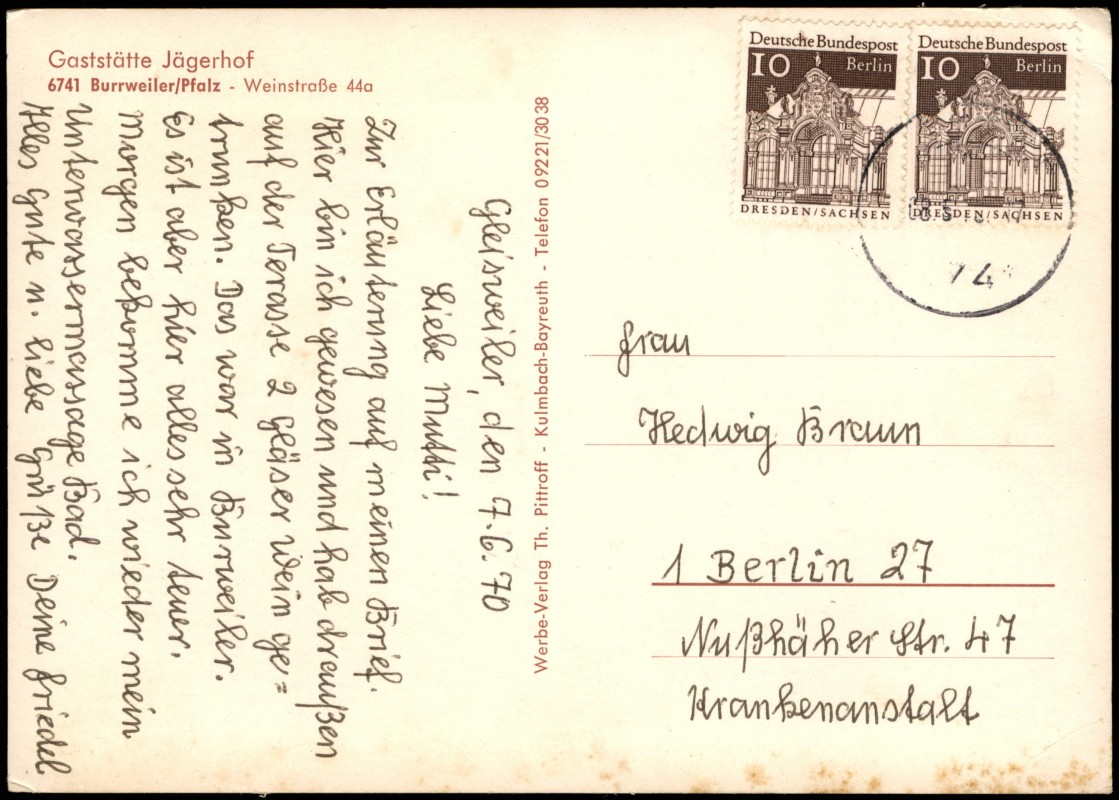 Gaststätte Jägerhof
6741 Burrweiler/Pfalz - Weinstraße 44a
Gleisweiler, den 7.6.70
Liebe Mutti!
Zur Erläuterung auf meinen Brief.
Hier bin ich gewesen und hab draußen
auf der Terasse 2 Gläser Wein ge=
trunken. Das war in Burweiler.
Es ist aber hier alles sehr teuer.
Morgen bekomme ich wieder mein
Unterwassermassage Bad.
Alles Gute u. liebe Grüße Deine Friedel
Werbe-Verlag Th. Pittroff - Kulmbach-Bayreuth - Telefon 09221/3038
Deutsche Bundespost
10 Berlin
DRESDEN/SACHSEN
Deutsche Bundespost
10 Berlin
DRESDEN/SACHSEN
74
Frau
Hedwig Braun
1 Berlin 27
Nußhäher Str. 47
Krankenanstalt